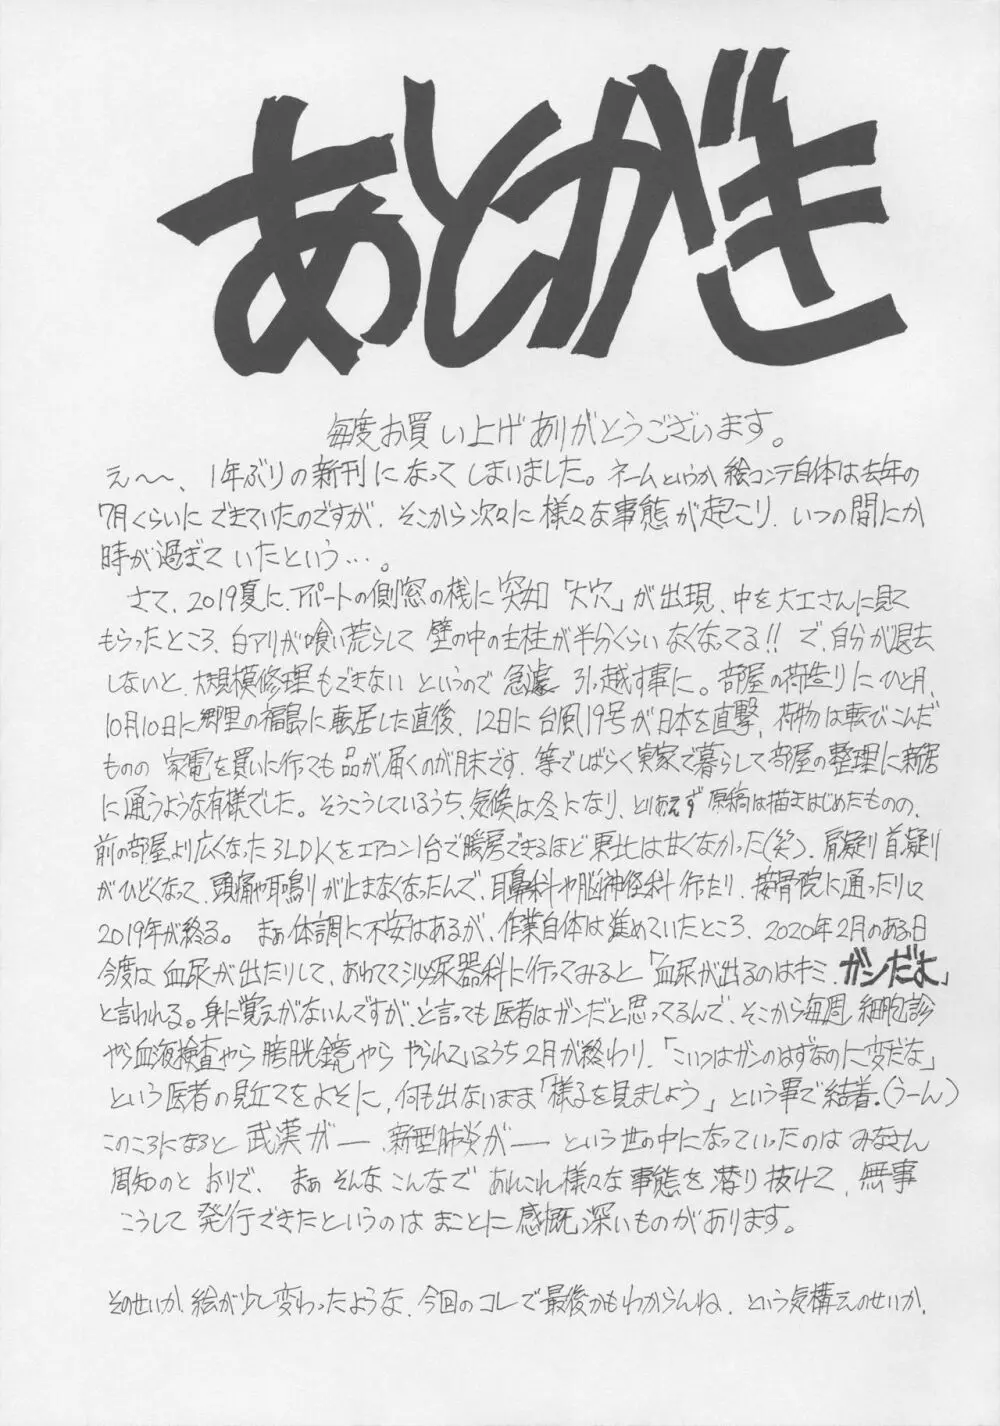 あとがき
毎度お買い上げありがとうございます。
え〜〜、1年ぶりの新刊になってしまいました。ネームというか絵コンテ自体は去年の
7月くらいにできていたのですが、そこから次々に様々な事態が起こり、いつの間にか
時が過ぎていたという…。
さて、2019夏に、アパートの側窓の桟に突如「大穴」が出現、中を大工さんに見て
もらったところ、白アリが喰い荒らして壁の中の主柱が半分くらいなくなってる!!で、自分が退去
しないと、大規模修理もできないというので急遽引っ越す事に。部屋の荷造りにひと月、
10月10日に郷里の福島に転居した直後、12日に台風19号が日本を直撃、荷物は転びこんだ
ものの家電を買いに行っても品が届くのが月末です、等でしばらく実家で暮らして部屋の整理に新居
に通うような有様でした。そうこうしているうち、気候は冬になり、とりあえず原稿は描きはじめたものの、
前の部屋より広くなった3LDKをエアコン1台で暖房できるほど東北は甘くなかった(笑)、肩凝り首凝り
がひどくなって、頭痛や耳鳴りが止まなくなったんで、耳鼻科や脳神経科行ったり、接骨院に通ったりして
2019年が終る。まぁ体調に不安はあるが、作業自体は進めていたところ、2020年2月のある日
今度は血尿が出たりして、あわてて泌尿器科に行ってみると「血尿が出るのはキミ、ガンだよ」
と言われる。身に覚えがないんですが、と言っても医者はガンだと思ってるんで、そこから毎週細胞診
やら血液検査やら膀胱鏡やらやられているうち2月が終わり、「こいつはガンのはずなのに変だな」
という医者の見立てをよそに、何も出ないまま「様子を見ましょう」という事で結着。(うーん)
このころになると武漢がー新型肺炎がーという世の中になっていったのはみなさん
周知のとおりで、まぁそんなこんなであれこれ様々な事態を潜り抜けて、無事
こうして発行できたというのはまことに感慨深いものがあります。
そのせいか絵が少し変わったような、今回のコレで最後かもわからんね、という気構えのせいか、